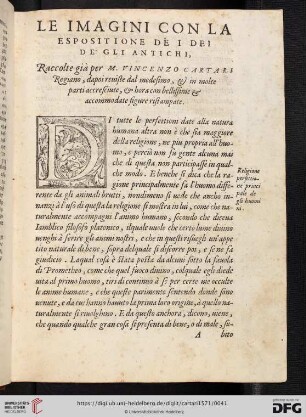 LE IMAGINI CON LA
ESPOSITIONE DE I DEI
DE GLI ANTICHI,
Raccolte già per M. VINCENZO CARTARI
Regiano, dapoi reviste dal medesimo, & in molte
parti accresciute, & hora con bellissime &
accommodate figure ristampate.
DI tutte le perfettioni date alla natura
humana altra non è che sia maggiore
della religione, ne piu propria all'huo-
mo, e perciò non fu gente alcuna mai
che di questa non participasse in qual-
che modo. E benche si dica che la ra-
gione principalmente fa l'huomo diffe-
rente da gli animali bruti, nondimeno si vede che ancho in-
nanzi à l'uso di questa la religione si mostra in lui, come che na-
turalmente accompagni l'animo humano, secondo che diceua
Iamblico filosofo platonico, ilquale vuole che certo lume diuino
venghi à ferire gli animi nostri, e che in questi risuegli vn appe-
tito naturale del bene, sopra del quale si discorre poi, e se ne fa
giudicio. Laqual cosa è stata posta da alcuni sotto la fauola
di Prometheo, come che quel fuoco diuino, colquale egli diede
vita al primo huomo, tiri di continuo à se per certe vie occulte
l'animo humano, e che questo parimente sentendo donde sia
venuto, e da cui hanno hauuto la prima loro origine, à quello na-
turalmente si riuolghino. E da questo anchora, dicono, viene,
che quando qualche gran cosa si presenta di bene, o di male, su-
A bito
Religione
propria
gli huomi
ni.
https://digi.ub.uni-heidelberg.de/diglit/cartari1571/0041
© Universitätsbibliothek Heidelberg